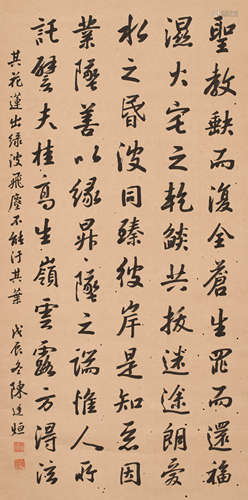 聖教缺而復全蒼生罪而還福
濕火宅之乾燄共拔迷途朗愛
水之昏波同臻彼岸是知惡因
業墜善以緣昇墜之端惟人所
託譬夫桂高生嶺雲露方得泫
其花蓮出緑波飛塵不能汙其葉 戊辰冬 陳